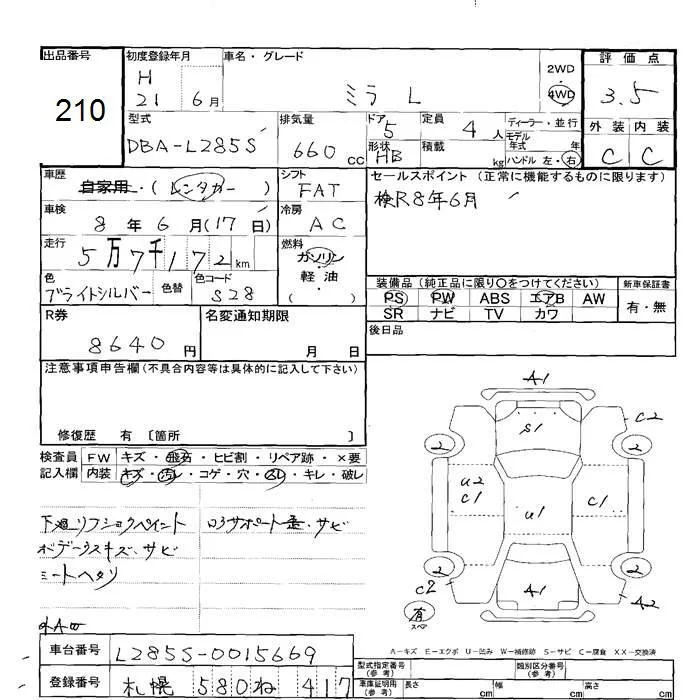 出品番号 初度登録年月 車名・グレード 評価点
210
H 21 6月 ミラ L 2WD・4WD 3.5
型式 排気量 ドア 定員 ディーラー・並行 外装 内装
DBA-L285S 660cc 5 4人 モデル
形状 積載 年式 年
HB kg ハンドル 左・右 C C
車歴 シフト セールスポイント(正常に機能するものに限ります)
自家用・(レンタカー) FAT 検R8年6月
車検 冷房
8年6月(17日) AC
走行 燃料
5万7千172km ガソリン
軽油
( )
色 色替 色コード
ブライトシルバー S28
装備品(純正品に限り○をつけてください) 新車保証書
PS PW ABS エアB AW 有・無
SR ナビ TV カワ
R券 名変通知期限 後日品
8640円 月 日
注意事項申告欄(不具合内容等は具体的に記入して下さい)
修復歴 有 〔箇所 〕
検査員 FW キズ・飛石・ヒビ割・リペア跡・×要
記入欄 内装 キズ・汚レ・コゲ・穴・スレ・キレ・破レ
下廻リフショクペイント ロアサポート サビ
ボデー キズ、サビ
シートヘタリ
A1
S1 C2
2 2
U2
C1 U1 C1
2 2
C2 A1 A2
有
スペア
A-キズ E-エクボ U-凹み W-補修跡 S-サビ C-腐食 XX-交換済
車台番号 L285S-0015669
型式指定番号(参考) 類別区分番号(参考)
登録番号 札幌 580 ね 417
車庫証明用(参考) 長さ cm 幅 cm 高さ cm